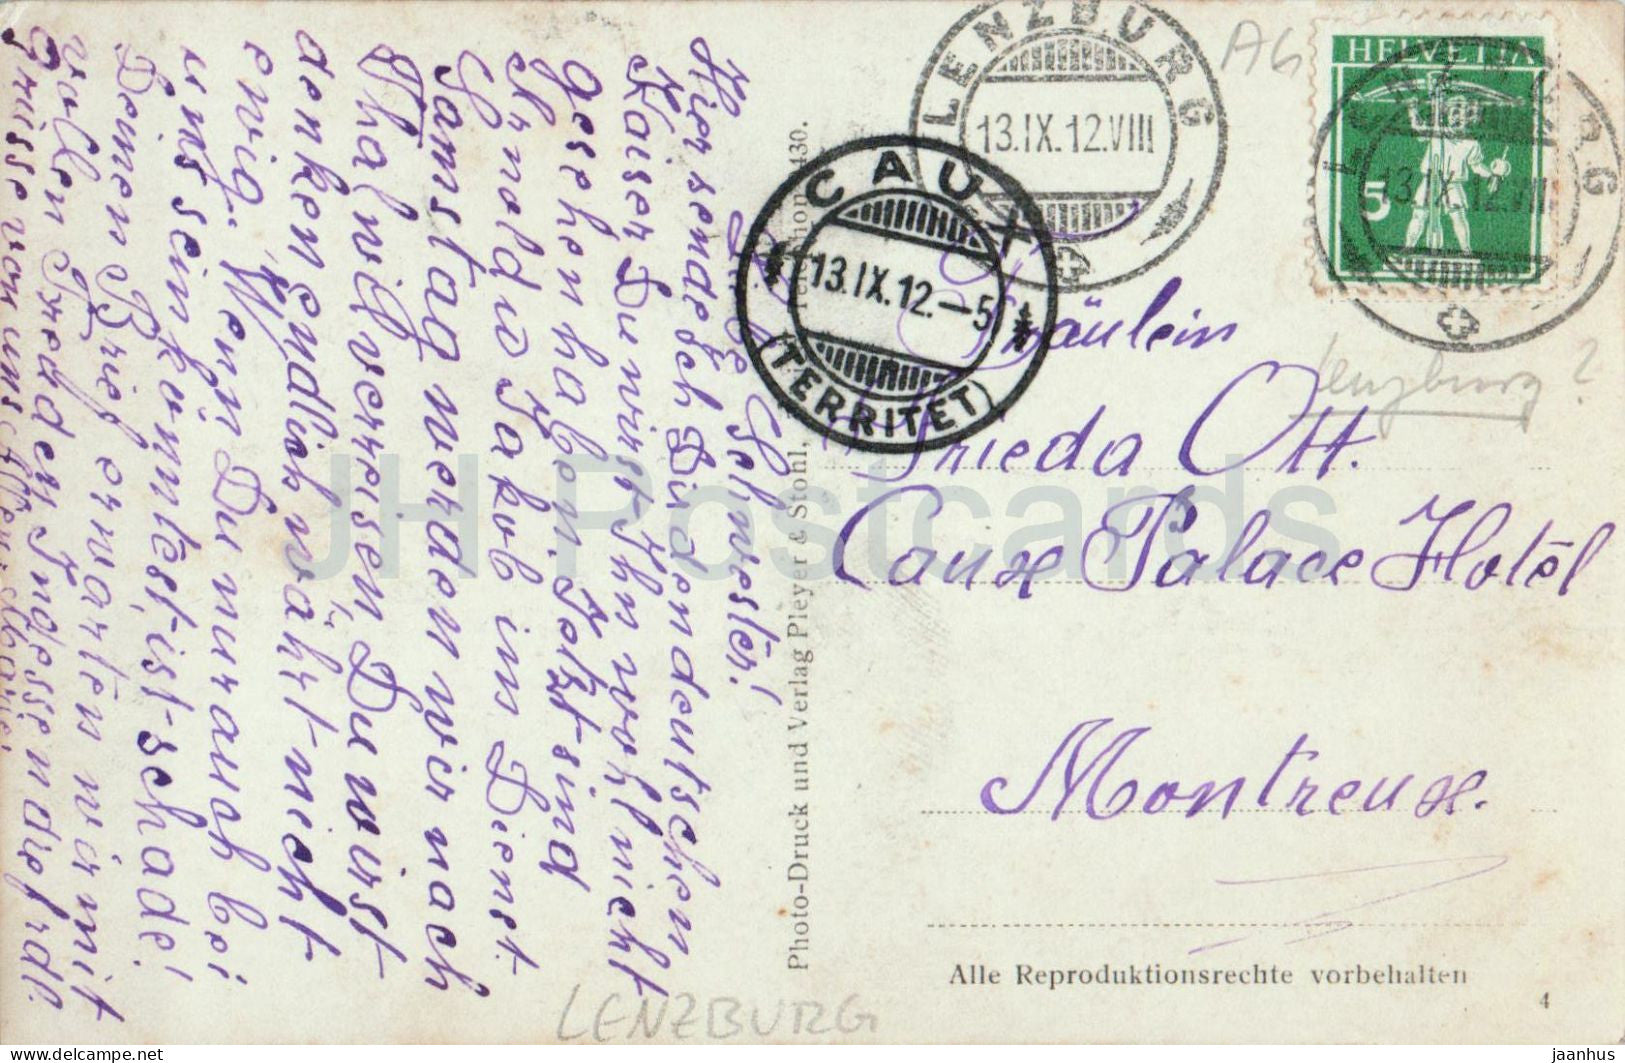 Liebe Schwester!
Hier sende ich Dir den deutschen
Kaiser Du wirst Ihn wohl nicht
gesehen haben. Jetzt sind
Arnold u Jakob im Dienst.
Samstag werden wir nach
Thalwil verreisen, Du wirst
denken endlich währt nicht
ewig. Wenn Du nur auch bei
uns sein könntest, ist schade!
Deinen Brief erwarten wir mit
vollen Freuden. Indessen
Grüsse von uns allen
LENZBURG
13.IX.12.VIII
CAUX
13.IX.12.-5
(TERRITET)
AG
HELVETIA
5
LENZBURG
13.IX.12.VIII
Fräulein
Lenzburg?
Frieda Ott.
Caux Palace Hotêl
Montreux.
Photo-Druck und Verlag Pleyer & Stohl, Telephon 430.
Alle Reproduktionsrechte vorbehalten
4
LENZBURG
JH Postcards
www.delcampe.net
jaanhus